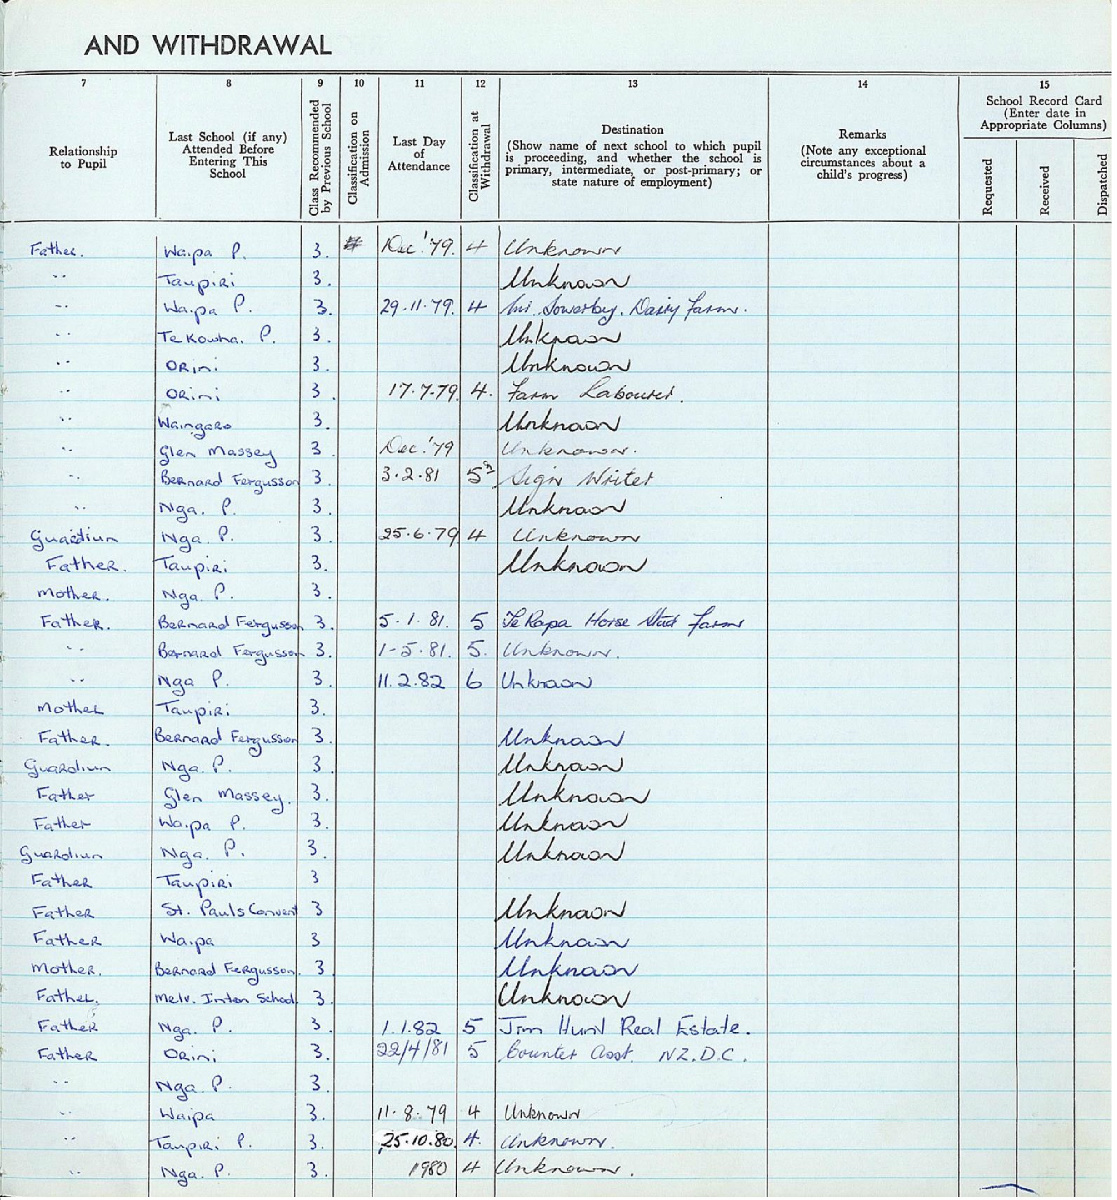 AND WITHDRAWAL
7 8 9 10 11 12 13 14 15
Relationship to Pupil
Last School (if any) Attended Before Entering This School
Class Recommended by Previous School
Classification on Admission
Last Day of Attendance
Classification at Withdrawal
Destination
(Show name of next school to which pupil is proceeding, and whether the school is primary, intermediate, or post-primary; or state nature of employment)
Remarks
(Note any exceptional circumstances about a child's progress)
School Record Card
(Enter date in Appropriate Columns)
Requested
Received
Dispatched
Father. Waipa P. 3. # Dec '79. 4 Unknown
" Taupiri 3. Unknown
" Waipa P. 3. 29.11.79. 4 Sowerby. Dairy Farm.
" Te Kowha. P. 3. Unknown
" Orini 3. Unknown
" Orini 3. 17.7.79. 4. Farm Labourer.
" Waingaro 3. Unknown
" Glen Massey 3. Dec '79 Unknown.
" Bernard Fergusson 3. 3.2.81 5 Sign Writer
" Nga. P. 3. Unknown
Guardian Nga P. 3. 25.6.79 4 Unknown
Father. Taupiri 3. Unknown
Mother. Nga. P. 3.
Father. Bernard Fergusson 3. 5.1.81. 5 Te Rapa Horse Stud Farm
" Bernard Fergusson 3. 1-5.81. 5. Unknown.
" Nga P. 3. 11.2.82 6 Unknown
Mother Taupiri 3.
Father. Bernard Fergusson 3. Unknown
Guardian Nga. P. 3. Unknown
Father Glen Massey. 3. Unknown
Father Waipa P. 3. Unknown
Guardian Nga. P. 3. Unknown
Father Taupiri 3
Father St. Pauls Convent 3 Unknown
Father Waipa 3 Unknown
Mother. Bernard Fergusson. 3 Unknown
Father. Melv. Inten School 3. Unknown
Father Nga. P. 3. 1.1.82 5 Jim Hunt Real Estate.
Father Orini 3. 22/4/81 5 Counter Asst. N.Z.D.C.
" Nga. P. 3.
" Waipa 3. 11.8.79 4 Unknown
" Taupiri P. 3. 25.10.80. 4. Unknown.
" Nga. P. 3. 1980 4 Unknown.